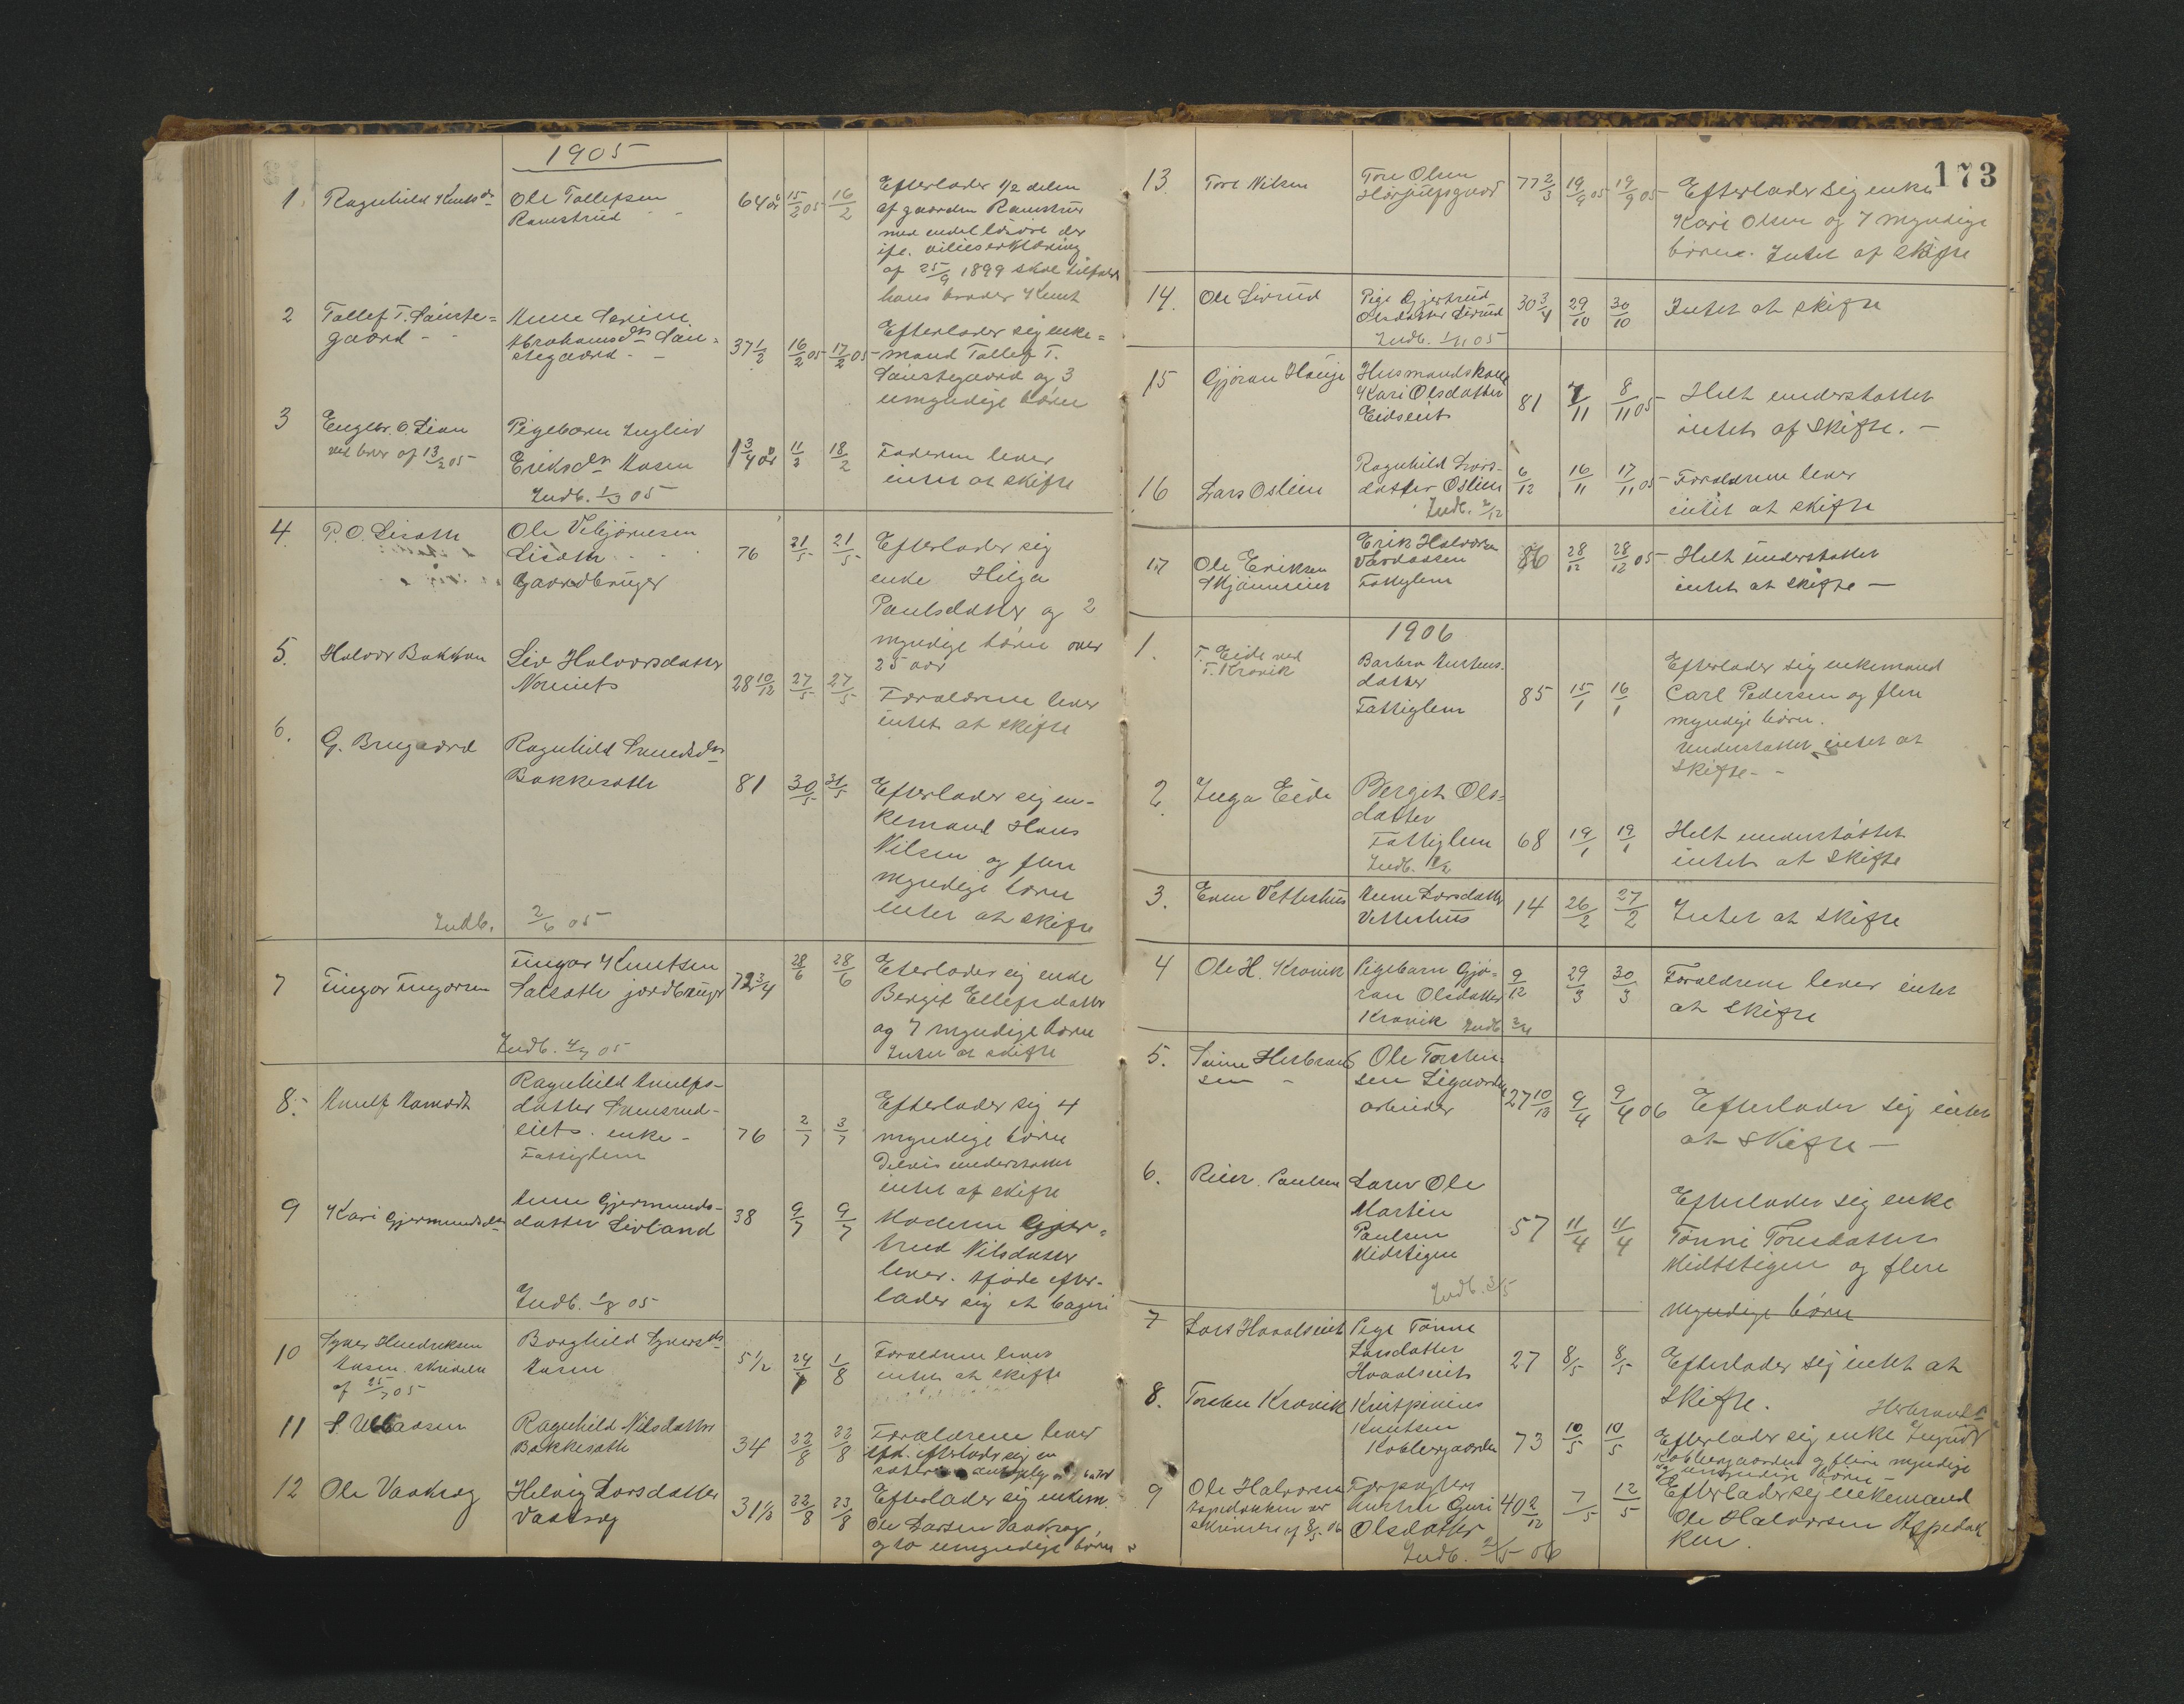 1905
1. Ragnhild Knutsdr Ole Tollefsen 64 aar 15/2 05 16/2 Efterlader 1/2 delen
Ramstrud af gaarden Ramstrud
med endel løsøre der
ifl. viljeserklæring
af 25/9 1899 skal tilfalde
hans broder Knut
2 Tollef T. Anne
gaard Abrahamsdtr 37 1/2 16/2 05 17/2 05 Efterlader sig enke=
mand Tollef T.
og 3
umyndige børn
3 Engebr. O. Lien Pigebarn Ingleiv
ved brev af 13/2 05 Eriksdr Aasen 1 3/4 aar 11/2 18/2 Faderen lever
intet at skifte
Indb. 1/3 05
4. P. O. Lisæth Ole Vebjørnsen
Lisæth 76 21/5 21/5 Efterlader sig
Gaardbruger enke Helga
Paulsdatter og 2
myndige børn over
25 aar
5. Halvor Bakken Liv Halvorsdatter
28 10/12 27/5 27/5 Forældrene lever
intet at skifte
6. G. Bregaard Ragnhild Svendsdtr
Bakkesæth 81 30/5 31/5 Efterlader sig en-
kemand Hans
Nilsen og flere
myndige børn
intet at skifte
Indb. 2/6 05
7 Fingar Fingarsen Fingar Knutsen 72 3/4 28/6 28/6 Eterlader sig enke
jordbruger Bergit Ellefsdatter
og 7 myndige børn
Intet at skifte
Indb. 4/7 05
8. Anulf Ragnhild Anulfs-
datter
enke - 76 2/7 3/7 Efterlader sig 4
Fattiglem myndige børn
Delvis understøttet
intet at skifte
9 Kari Gjermundsdtr Anne Gjermunds-
datter Livland 38 9/7 9/7 Moderen Gjer=
trud Nilsdatter
lever. Afdøde efter-
lader sig et
Indb. 1/8 05
10 Syver Hendriksen Borghild Syversdtr
Aasen. skrivelse Aasen 5 1/2 24/7 1/8 Forældrene lever
af 25/7 05 intet at skifte
11 Ragnhild Nilsdatter
Bakkesæth 34 22/8 22/8 Forældrene lever
efterlader sig en
12 Ole Vaakrag Helvig Larsdatter
31 1/2 22/8 23/8 Efterlader sig enkem.
Ole Larsen Vaakrag
og to umyndige børn
173
13. Tore Nilsen Tore Olsen
77 2/3 19/9 05 19/9 05 Efterlader sig enke
Kari Olsen og 7 myndige
børn. Intet at skifte
14. Ole Livrud Pige Gjertrud
Olsdatter Livrud 30 3/4 29/10 30/10 Intet at skifte
Indb. 1/11 05
15 Gjøran Hauge Husmandskone
Kari Olsdatter
Eidseiet 81 7/11 8/11 05 Helt understøttet
intet at skifte. -
16 Lars Oslien Ragnhild Lars-
datter Oslien 6/12 16/11 17/11 05 Forældrene lever
Indb. 2/12 intet at skifte
17 Ole Eriksen Erik Halvorsen
Fattiglem 86 28/12 28/12 05 Helt understøttet
intet at skifte -
1906
1. T. Eide ved Barbro
T. Kravik datter
Fattiglem 85 15/1 16/1 Efterlader sig enkemand
Carl Pedersen og flere
myndige børn.
Understøttet intet at
skifte - -
2. Inga Eide Bergit Ols=
datter
Fattiglem 68 19/1 19/1 Helt understøttet
intet at skifte
Indb.
3. Even Vetterhus Anne Larsdatter
Vetterhus 14 26/2 27/2 Intet at skifte
4 Ole H. Kravik Pigebarn Gjø=
ran Olsdatter
Kravik 9/12 29/3 30/3 Forældrene lever intet
at skifte
Indb. 2/4
5. Herbrand Ole Torsten-
sen - sen
arbeider 27 10/12 9/4 9/4 06 Efterlader sig intet
at skifte -
6. Reier Paulsen Ole
Martin
Paulsen
Midtstigen 57 11/4 11/4 Efterlader sig enke
Tønni Toresdatter
Midtstigen og flere
myndige børn
Indb. 3/5
7 Lars Haavalseiet Pige Tønne
Larsdatter
Haavalseiet 27 8/5 8/5 Efterlader sig intet at
skifte.
8. Torsten Kravik
Knutsen
Koblergaarden 73 10/5 10/5 Efterlader sig enke Ingrid
Herbrandsdtr
Koblergaarden og flere myndige
og umyndige børn -
9 Ole Halvorsen
skrivelse af 8/5 06 Guri
Olsdatter 40 2/12 7/5 12/5 Efterlader sig enkemand
Ole Halvorsen Aspedok
ken.
Indb. 2/5 06